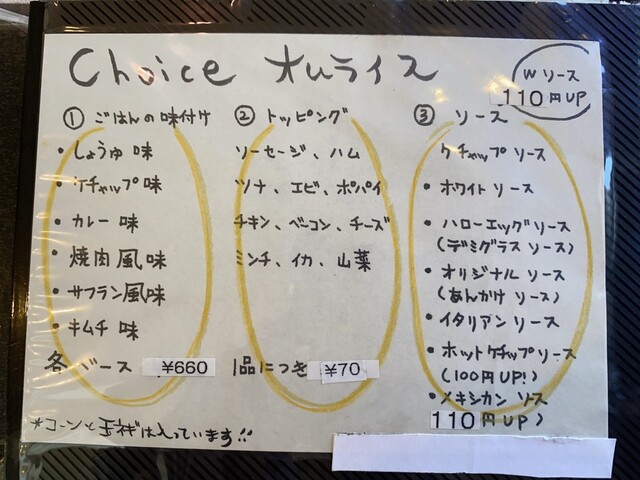 Choice オムライス
Wソース
110円UP
① ごはんの味付け
・しょうゆ味
・ケチャップ味
・カレー味
・焼肉風味
・サフラン風味
・キムチ味
各ベース ¥660
② トッピング
ソーセージ、ハム
ツナ、エビ、ポパイ
チキン、ベーコン、チーズ
ミンチ、イカ、山菜
1品につき ¥70
③ ソース
ケチャップソース
・ホワイトソース
・ハローエッグソース
(デミグラスソース)
・オリジナルソース
(あんかけソース)
・イタリアンソース
・ホットケチャップソース
(100円UP!)
・メキシカンソース
110円UP)
*コーンと玉ネギは入っています!!